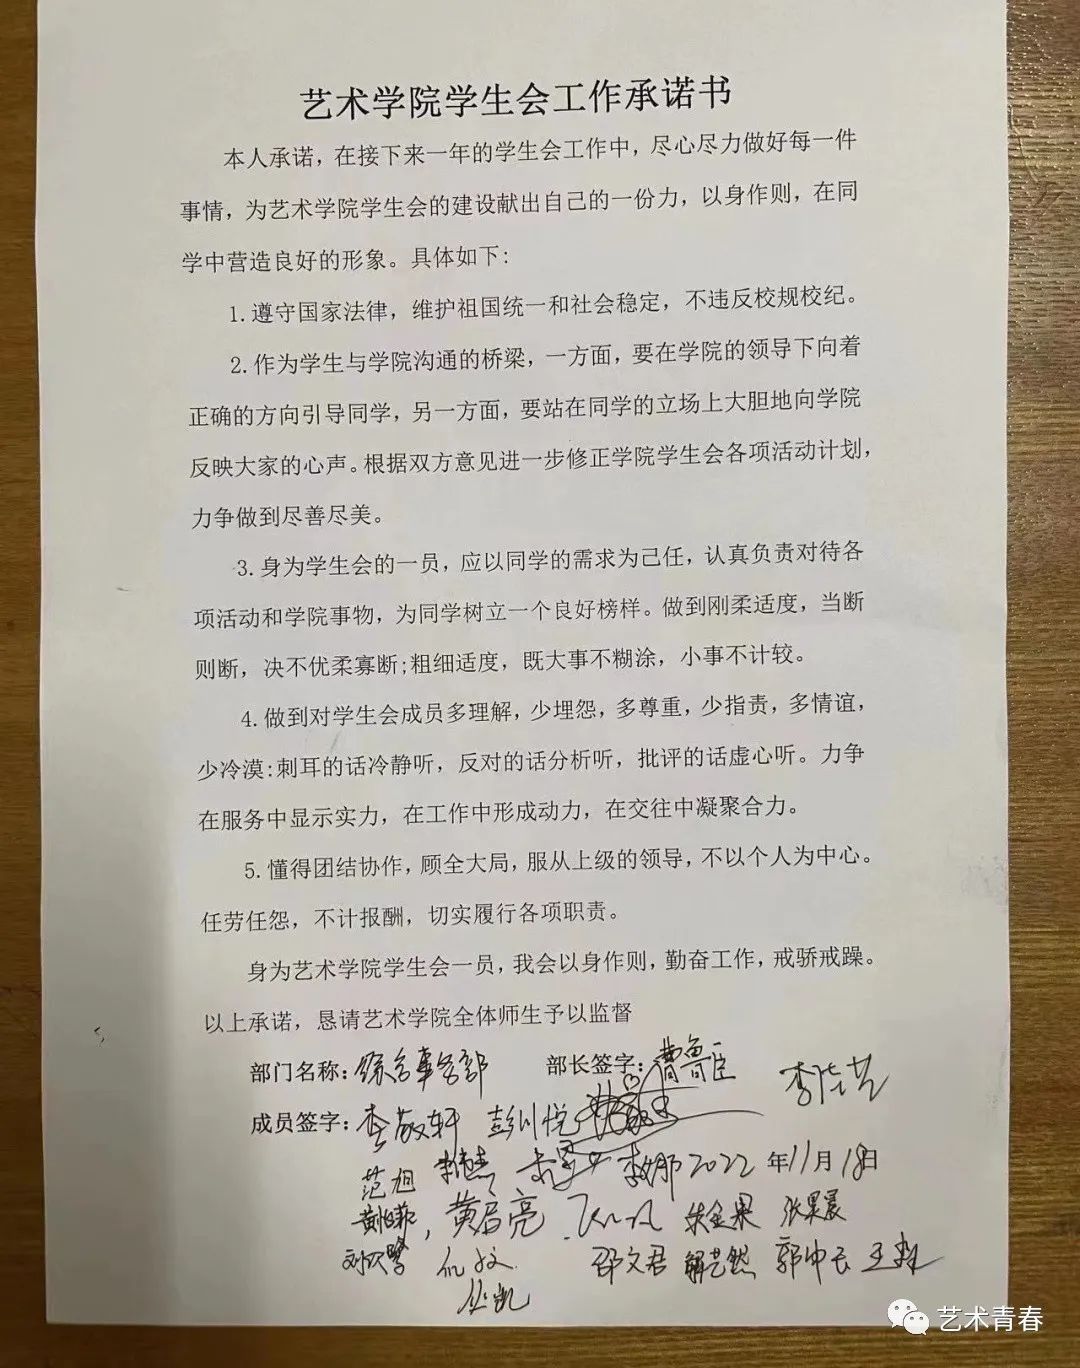 艺术学院学生会工作承诺书
本人承诺，在接下来一年的学生会工作中，尽心尽力做好每一件
事情，为艺术学院学生会的建设献出自己的一份力，以身作则，在同
学中营造良好的形象。具体如下：
1.遵守国家法律，维护祖国统一和社会稳定，不违反校规校纪。
2.作为学生与学院沟通的桥梁，一方面，要在学院的领导下向着
正确的方向引导同学，另一方面，要站在同学的立场上大胆地向学院
反映大家的心声。根据双方意见进一步修正学院学生会各项活动计划，
力争做到尽善尽美。
3.身为学生会的一员，应以同学的需求为己任，认真负责对待各
项活动和学院事物，为同学树立一个良好榜样。做到刚柔适度，当断
则断，决不优柔寡断;粗细适度，既大事不糊涂，小事不计较。
4.做到对学生会成员多理解，少埋怨，多尊重，少指责，多情谊，
少冷漠:刺耳的话冷静听，反对的话分析听，批评的话虚心听。力争
在服务中显示实力，在工作中形成动力，在交往中凝聚合力。
5.懂得团结协作，顾全大局，服从上级的领导，不以个人为中心。
任劳任怨，不计报酬，切实履行各项职责。
身为艺术学院学生会一员，我会以身作则，勤奋工作，戒骄戒躁。
以上承诺，恳请艺术学院全体师生予以监督
部门名称：综合事务部 部长签字：曹鲁臣
成员签字：李敬轩 彭川悦
范旭 李娜 2022年11月18日
黄启亮 朱金果 张昊晨
邵文君 解艺然 郭中天 王森
丛凯
艺术青春